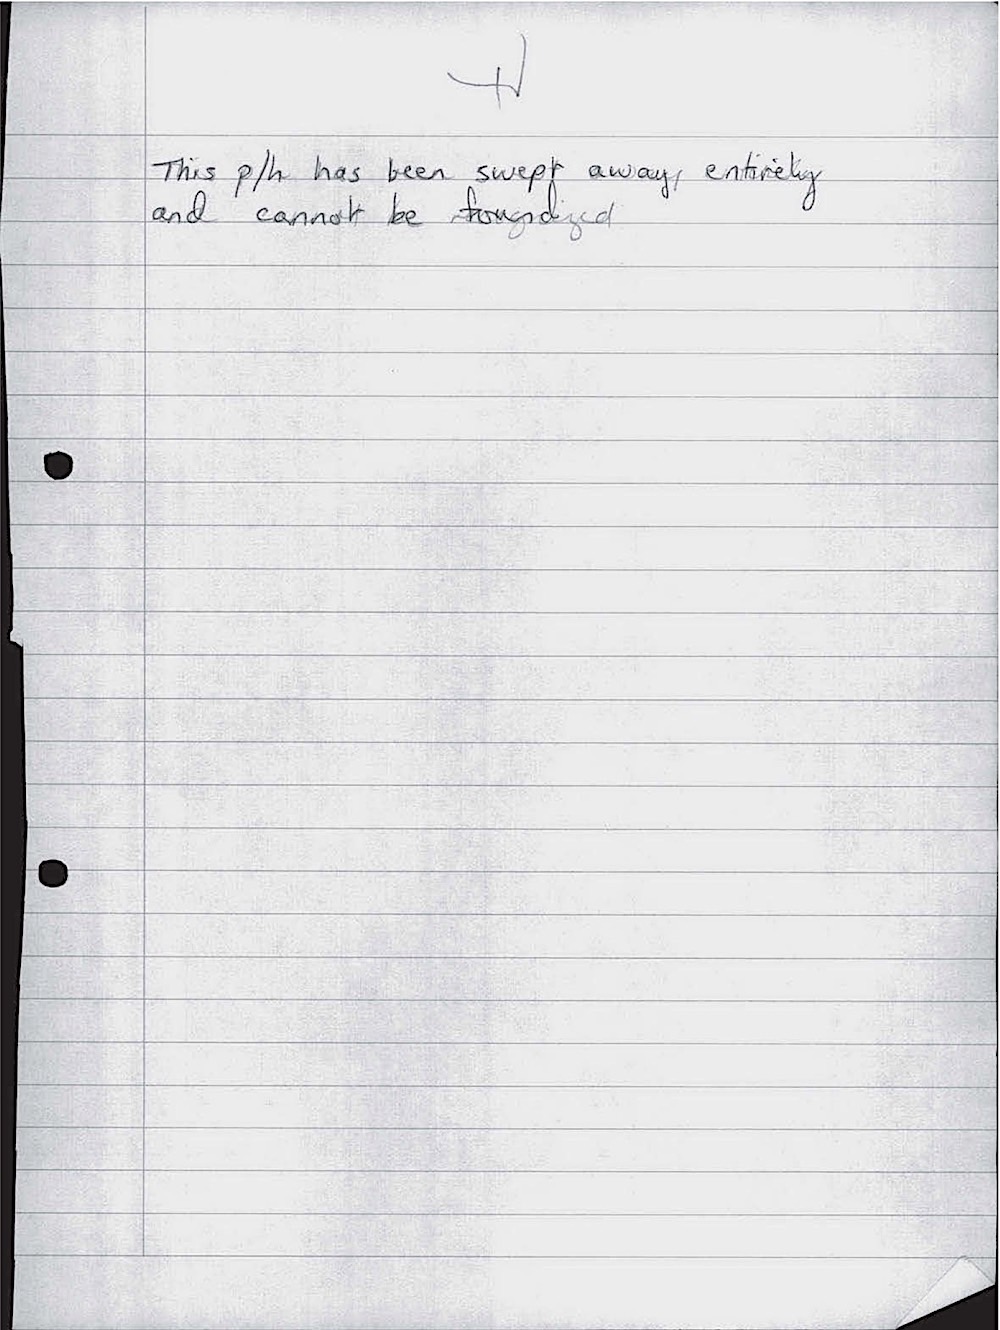 This p/h has been swept away, entirely
and cannot be